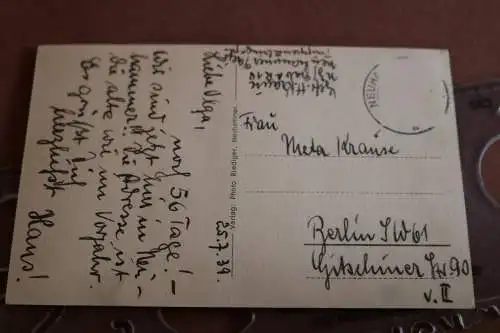 Liebe Olga,
noch 56 Tage! –
Wir sind jetzt hier in Neu-
hammer! Die Adresse ist
die alte wie im Vorjahr.
Es grüßt Dich
herzlichst
Hans!
23.7.39.
Verlag: Photo Riediger, Neuhammer
NEUHA
Frau
Meta Krause
Berlin SW61
Gitschiner Str. 90
v. II